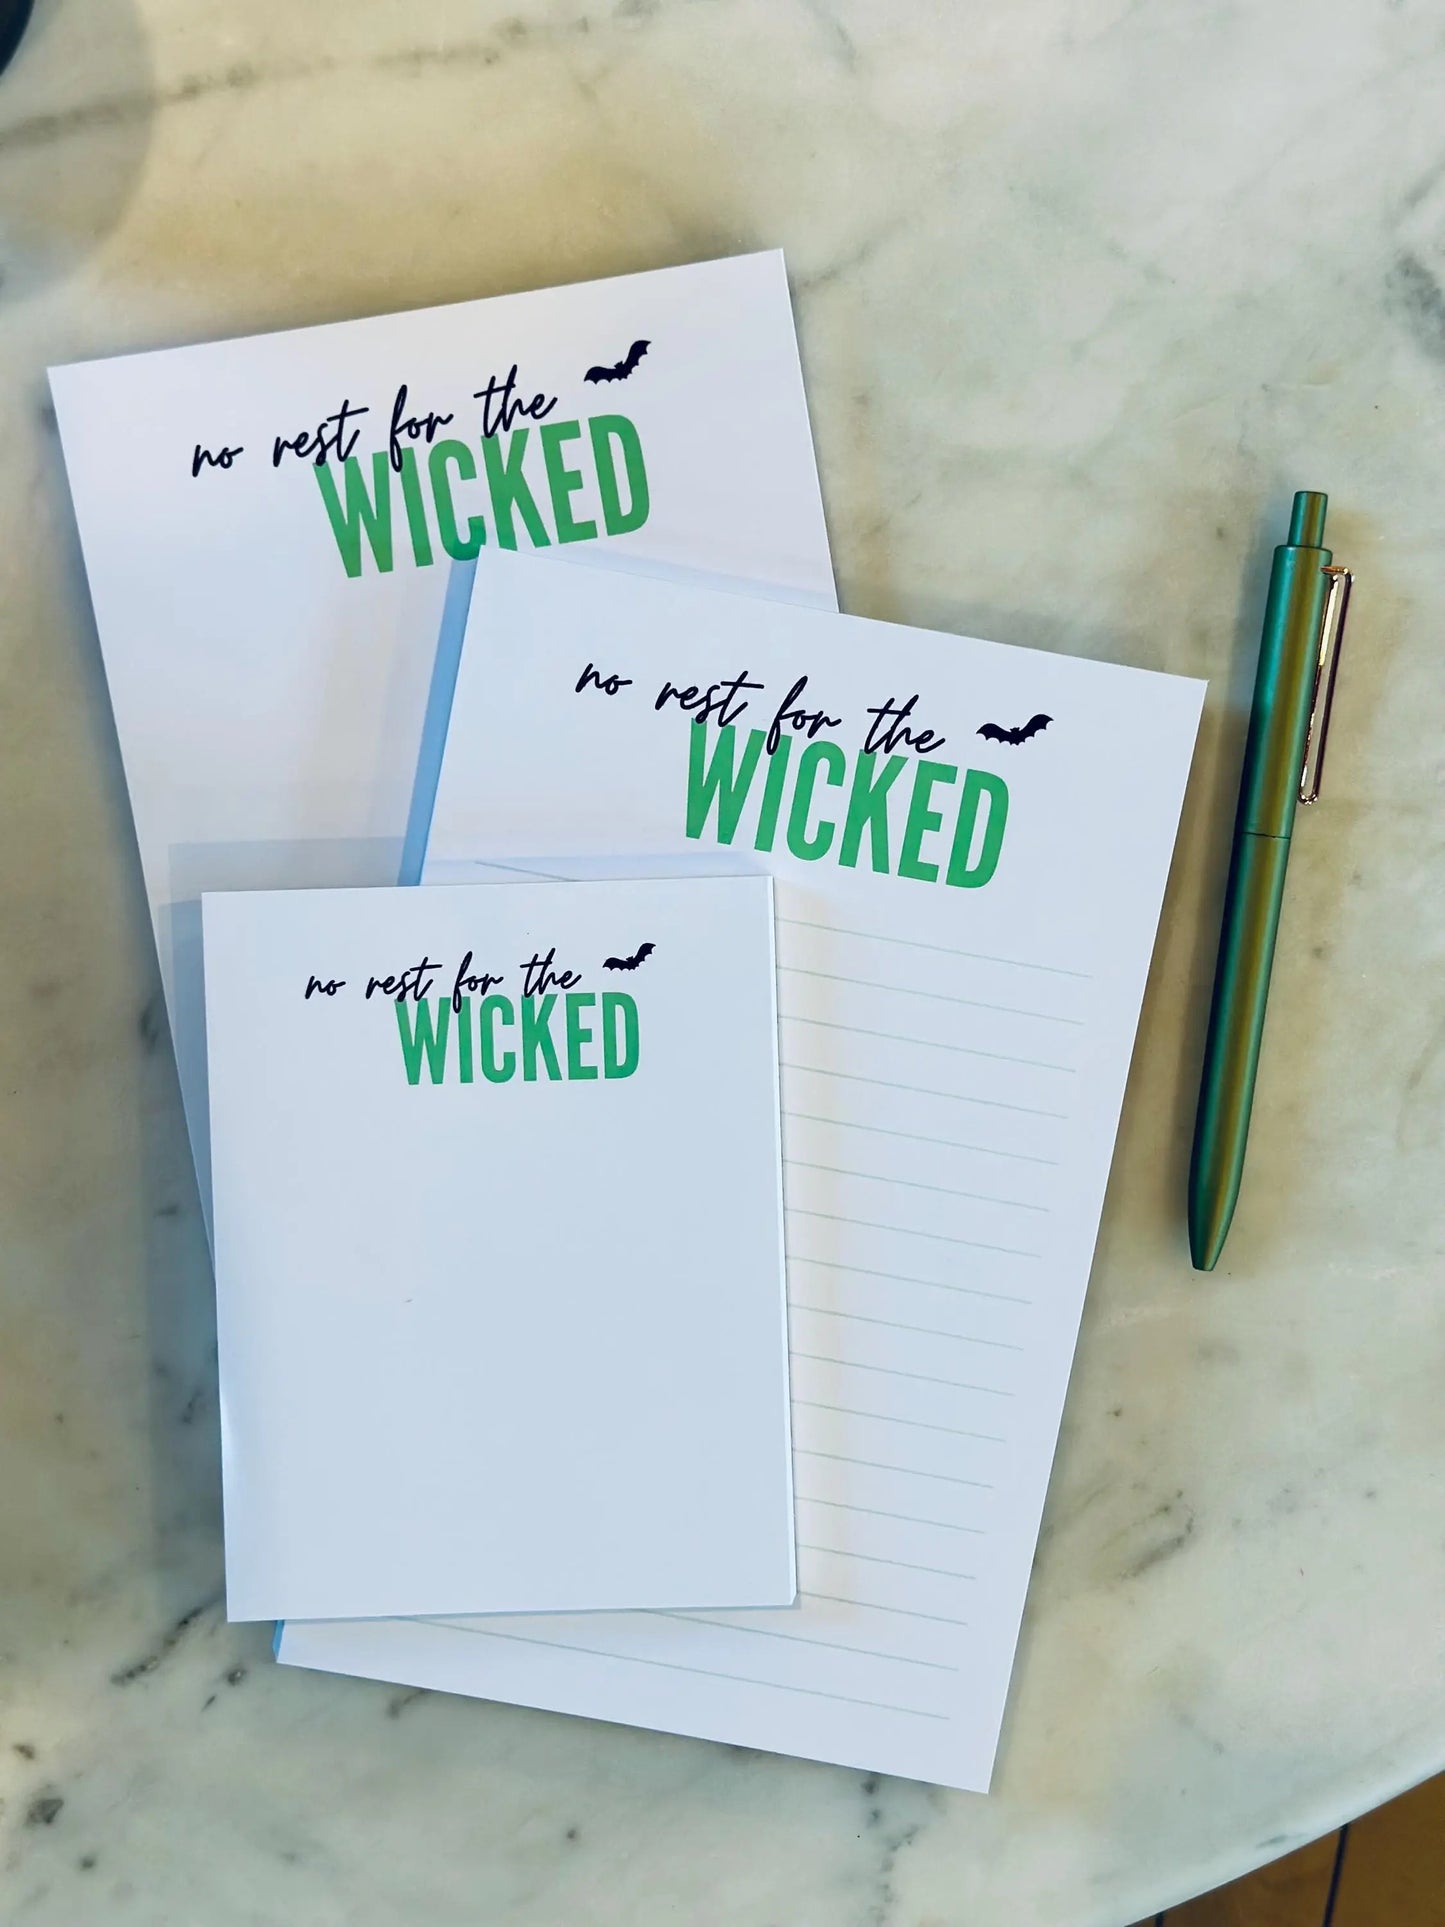 no rest for the
WICKED
no rest for the
WICKED
no rest for the
WICKED